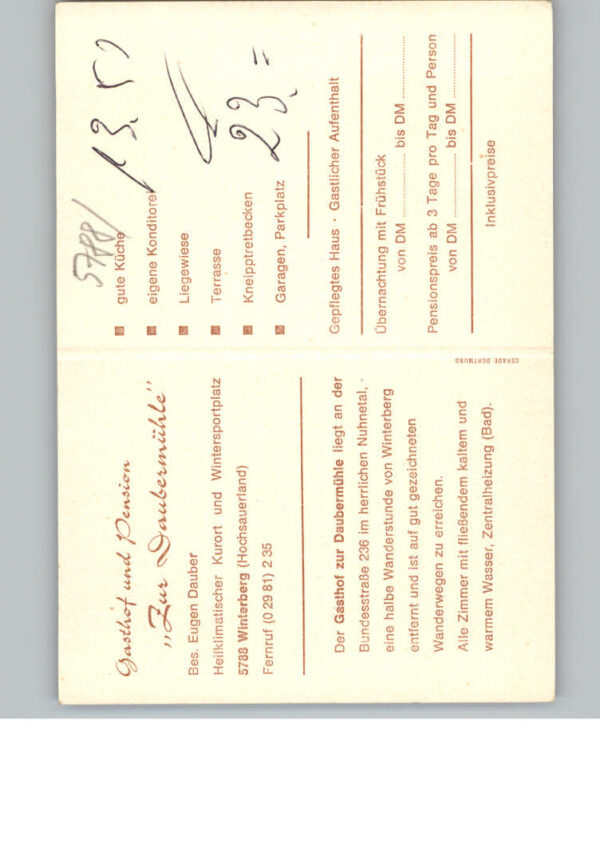 Gasthof und Pension
„Zur Daubermühle"
Bes. Eugen Dauber
Heilklimatischer Kurort und Wintersportplatz
5788 Winterberg (Hochsauerland)
Fernruf (0 29 81) 2 35
Der Gasthof zur Daubermühle liegt an der
Bundesstraße 236 im herrlichen Nuhnetal,
eine halbe Wanderstunde von Winterberg
entfernt und ist auf gut gezeichneten
Wanderwegen zu erreichen.
Alle Zimmer mit fließendem kaltem und
warmem Wasser, Zentralheizung (Bad).
GERADE DORTMUND
5788/
gute Küche
eigene Konditorei
Liegewiese
Terrasse
Kneipptretbecken
Garagen, Parkplatz
13.50
23.=
Gepflegtes Haus · Gastlicher Aufenthalt
Übernachtung mit Frühstück
von DM .............. bis DM ..............
Pensionspreis ab 3 Tage pro Tag und Person
von DM .............. bis DM ..............
Inklusivpreise